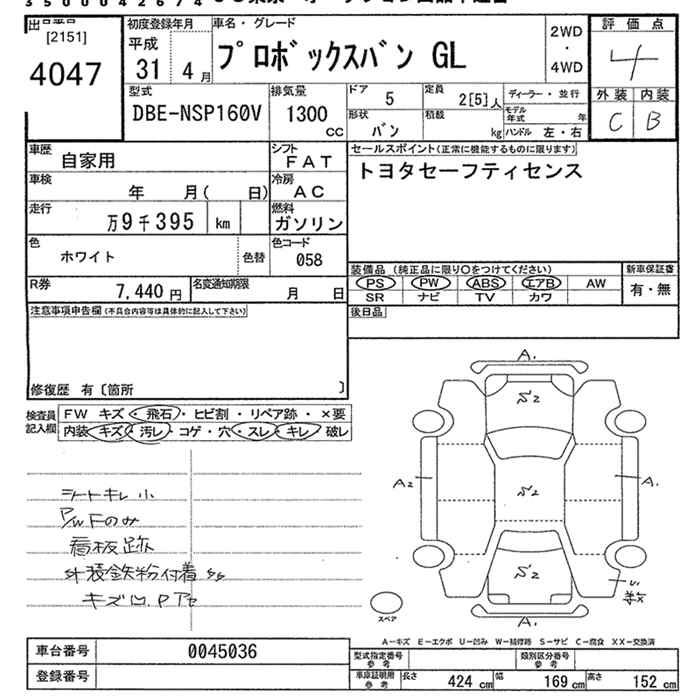 3500042674
出品番号
[2151]
4047
初度登録年月
平成
31 4 月
車名・グレード
プロボックスバン GL
2WD
・
4WD
評価点
4
外装 内装
C B
型式
DBE-NSP160V
排気量
1300
CC
ドア
5
定員
2[5]人
ディーラー・並行
モデル年式 年
形状
バン
積載
kg
ハンドル 左・右
車歴
自家用
シフト
FAT
セールスポイント(正常に機能するものに限ります)
トヨタセーフティセンス
車検
年 月( 日)
冷房
AC
走行
万9千395 km
燃料
ガソリン
色
ホワイト
色替
色コード
058
装備品 (純正品に限り○をつけてください)
新車保証書
PS PW ABS エアB AW
有・無
SR ナビ TV カワ
R券
7,440 円
名変通知期限
月 日
後日品
注意事項申告欄(不具合内容等は具体的に記入して下さい)
修復歴 有〔箇所 〕
検査員
記入欄
FW キズ・飛石・ヒビ割・リペア跡・×要
内装 キズ・汚レ・コゲ・穴・スレ・キレ・破レ
シートキレ小
P/W Fのみ
看板跡
外装鉄粉付着
キズ U. P
A.
S2
A2
S2
A.
S2
U.
A.
スペア
A-キズ E-エクボ U-凹み W-補修跡 S-サビ C-腐食 XX-交換済
車台番号
0045036
登録番号
型式指定番号
参考
類別区分番号
参考
車庫証明用
参考
長さ 424 cm
幅 169 cm
高さ 152 cm